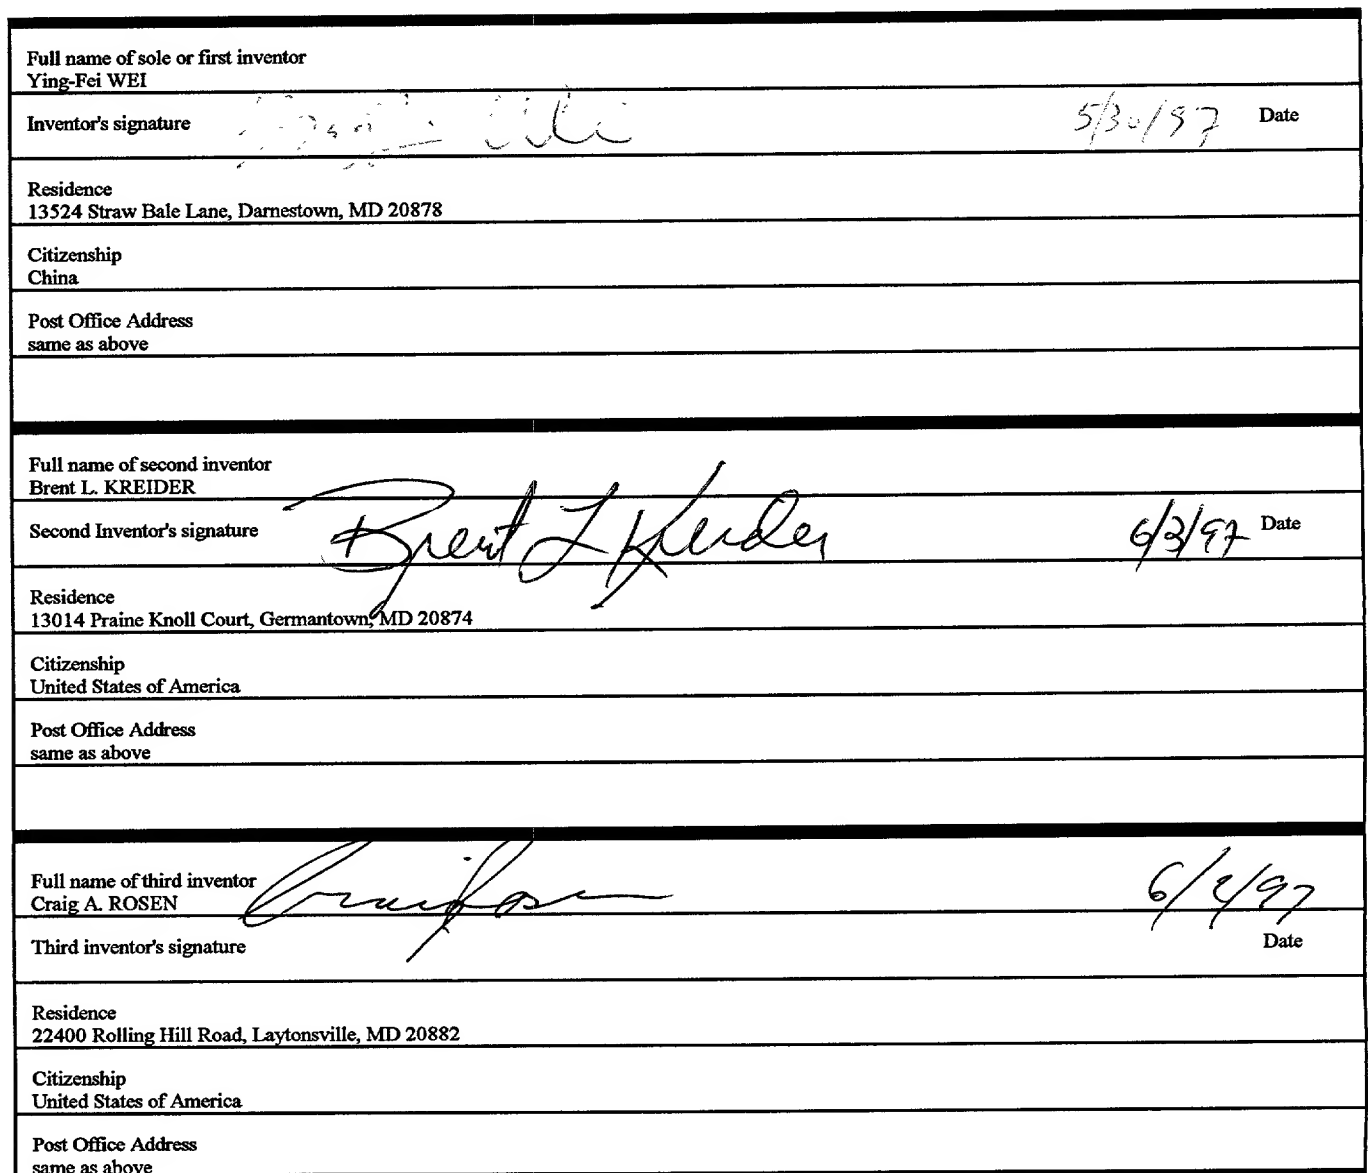 Full name of sole or first inventor
Ying-Fei WEI
Inventor's signature 5/30/97 Date
Residence
13524 Straw Bale Lane, Darnestown, MD 20878
Citizenship
China
Post Office Address
same as above
Full name of second inventor
Brent L. KREIDER
Second Inventor's signature Brent L Kreider 6/3/97 Date
Residence
13014 Praine Knoll Court, Germantown, MD 20874
Citizenship
United States of America
Post Office Address
same as above
Full name of third inventor
Craig A. ROSEN Craig Rosen 6/2/97
Third inventor's signature Date
Residence
22400 Rolling Hill Road, Laytonsville, MD 20882
Citizenship
United States of America
Post Office Address
same as above